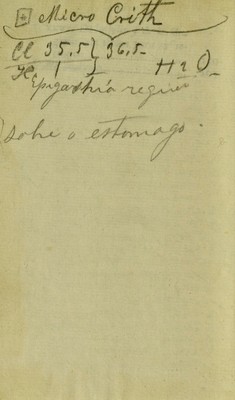 Micro Crith
Cl 35,5 } 36,5
H 1 } H2O
Epigasthria região
sobe o estomago.